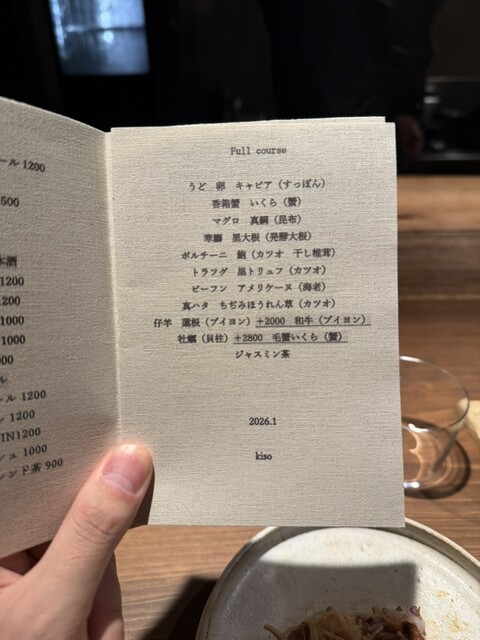 ール 1200
500
本酒
1200
1200
1000
1000
000
ル
ール 1200
ル 1200
IN1200
シュ 1000
レンド茶 900
Full course
うど 卵 キャビア（すっぽん）
香箱蟹 いくら（蟹）
マグロ 真鯛（昆布）
寒鰤 黒大根（発酵大根）
ポルチーニ 鮑（カツオ 干し椎茸）
トラフグ 黒トリュフ（カツオ）
ビーフン アメリケーヌ（海老）
真ハタ ちぢみほうれん草（カツオ）
仔羊 蓮根（ブイヨン）+2000 和牛（ブイヨン）
牡蠣（貝柱）+2800 毛蟹いくら（蟹）
ジャスミン茶
2026.1
kiso